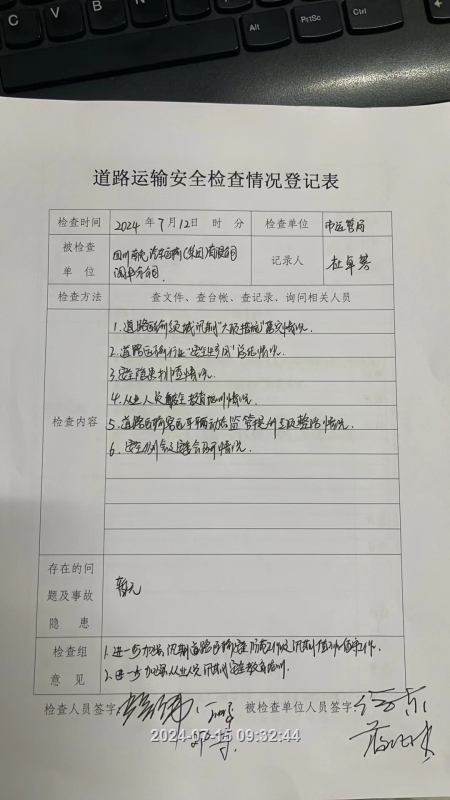 C V B N
Alt PrtSc Ctrl
道路运输安全检查情况登记表
检查时间 2024 年 7 月 12 日 时 分 检查单位 市运管局
被检查单位 四川 汽车运输(集团)有限公司 分公司 记录人 杜卓
检查方法 查文件、查台帐、查记录、询问相关人员
检查内容
1.道路运输领域汛期"大预措施"落实情况.
2.道路运输行业"安全生产月"总结情况.
3.安全隐患排查情况.
4.从业人员安全教育培训情况.
5.道路运输客运车辆动态监管提升及整治情况.
6.安全例会及安委会召开情况.
存在的问题及事故隐患 暂无
检查组意见
1.进一步加强汛期道路运输安全防范工作及汛期值班值守工作.
2.进一步加强从业人员汛期安全教育培训.
检查人员签字 被检查单位人员签字
2024-07-15 09:32:44